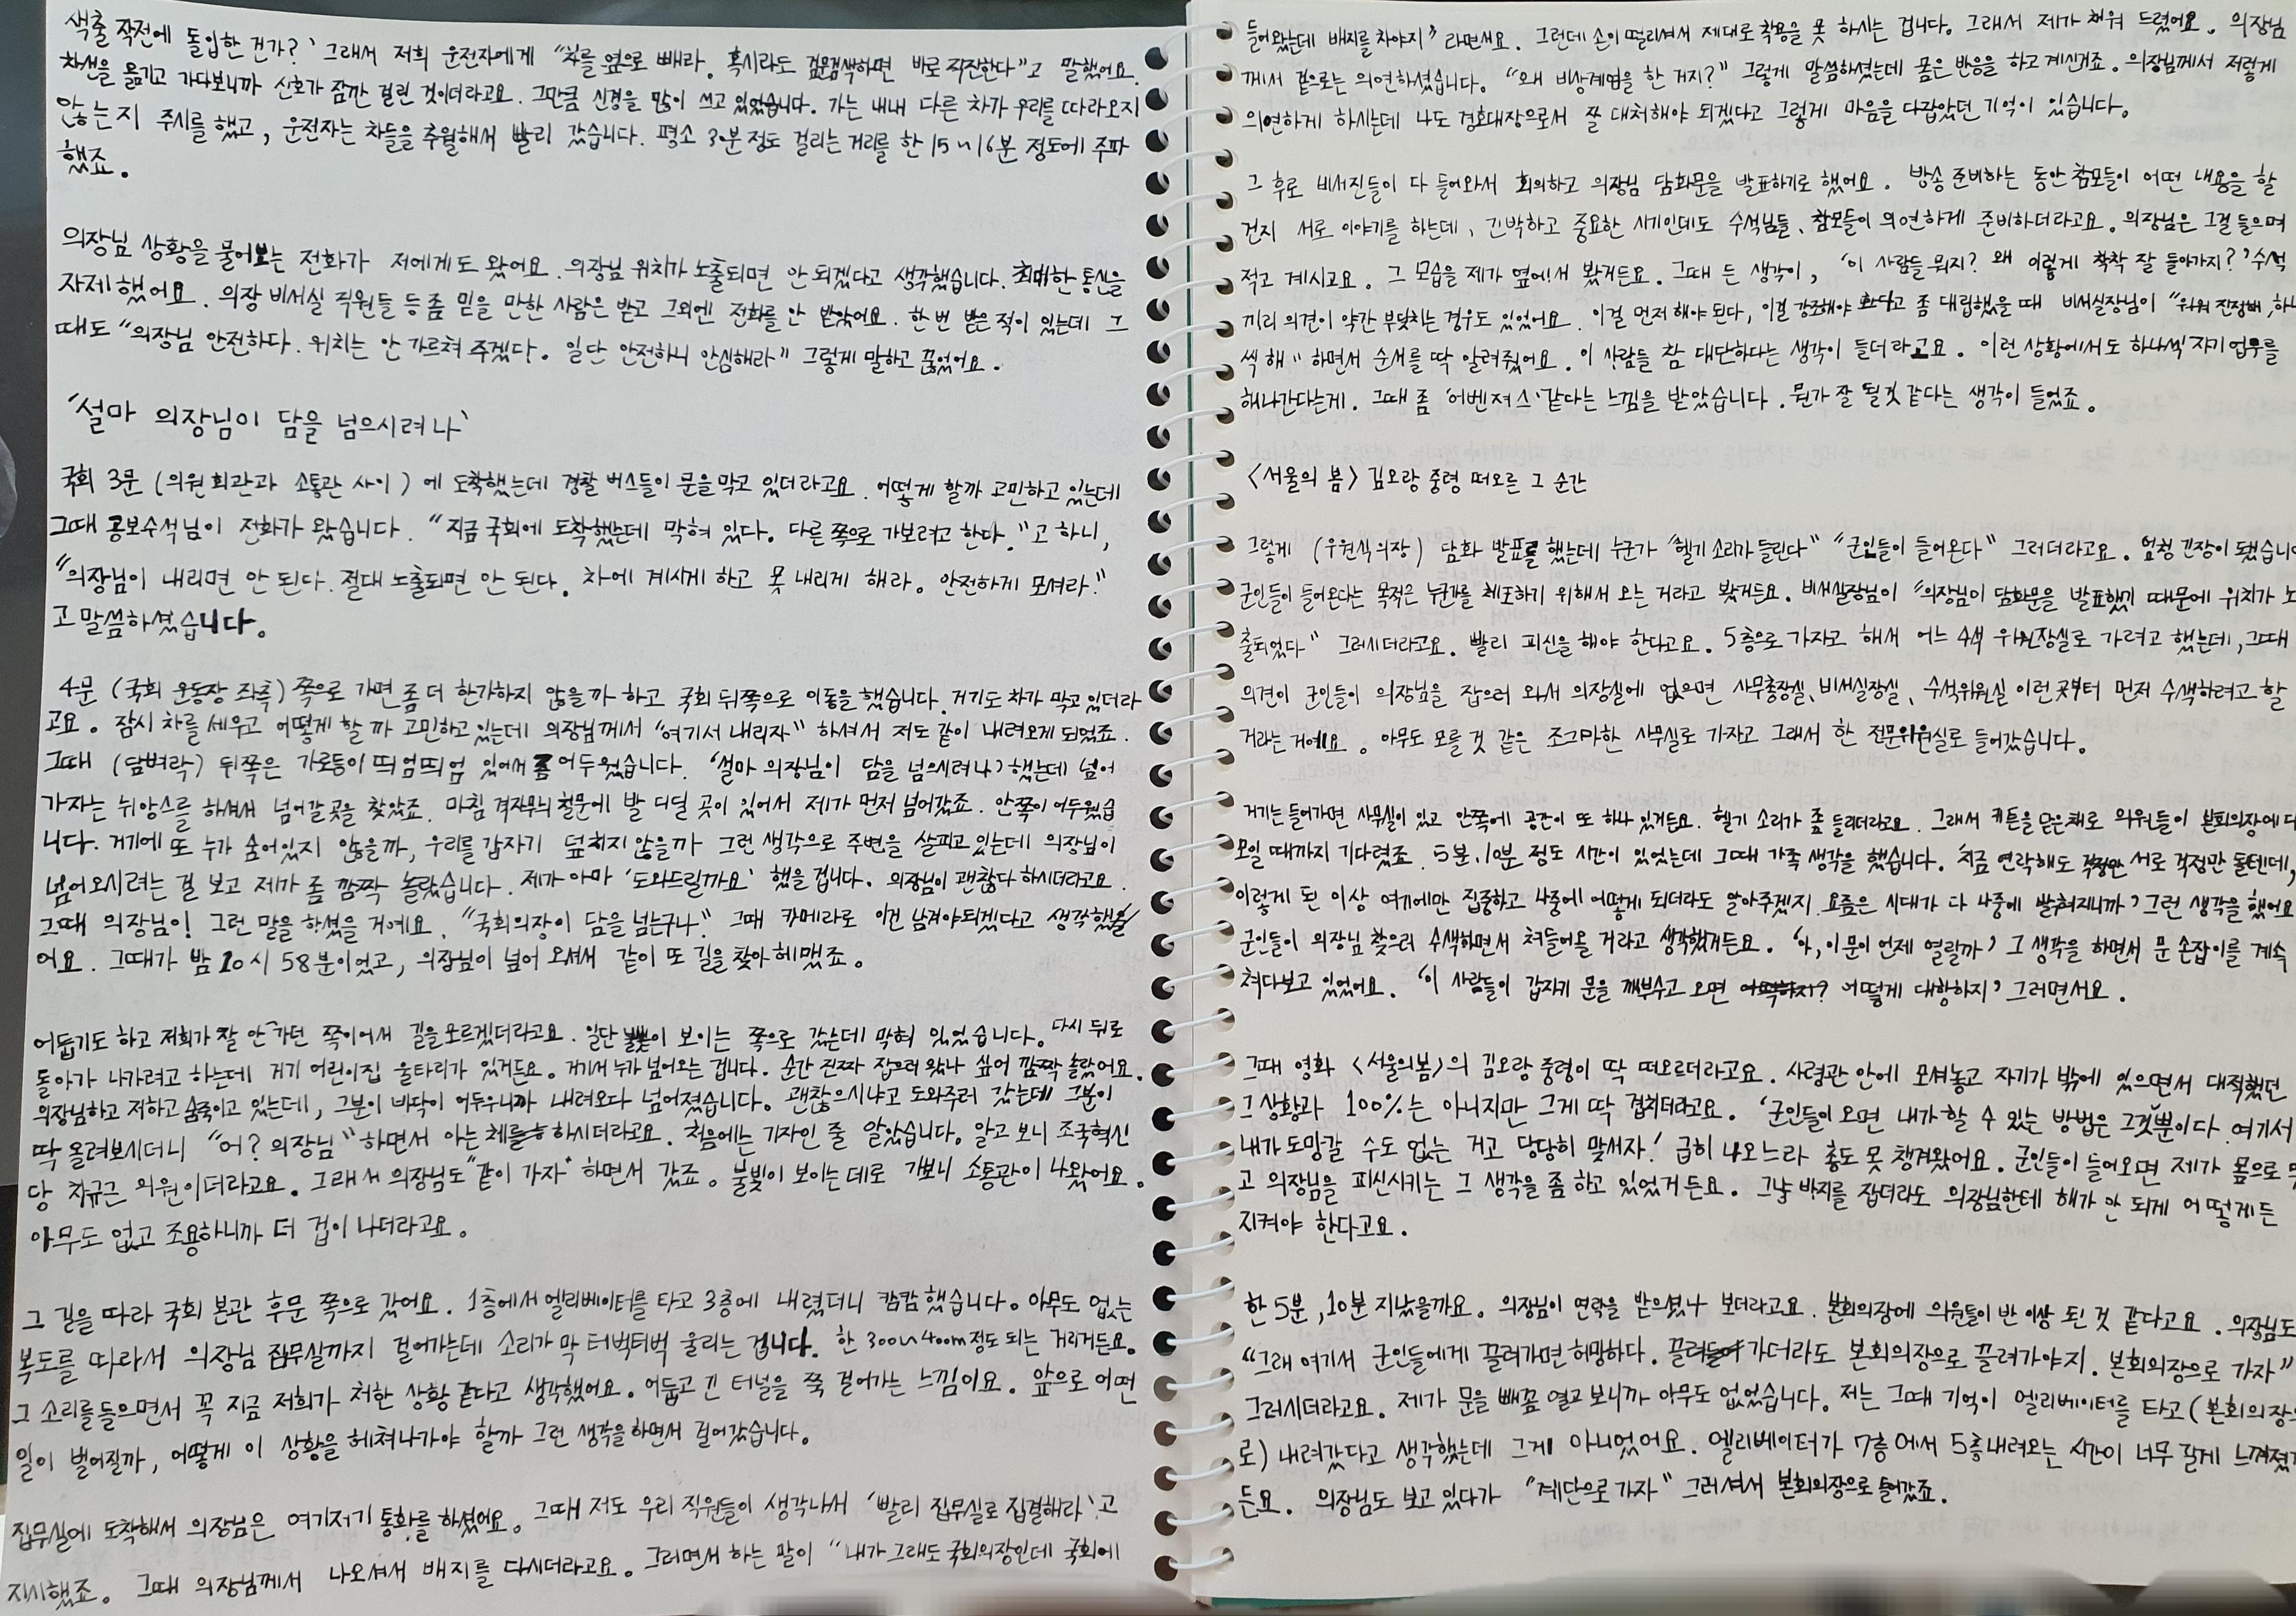 색출 작전에 돌입한 건가?' 그래서 저희 운전자에게 "차를 옆으로 빼라. 혹시라도 검문검색하면 바로 직진한다"고 말했어요.
차선을 옮기고 가다보니까 신호가 잠깐 걸린 것이더라고요. 그만큼 신경을 많이 쓰고 있었습니다. 가는 내내 다른 차가 우리를 따라오지
않는지 주시를 했고, 운전자는 차들을 추월해서 빨리 갔습니다. 평소 30분 정도 걸리는 거리를 한 15~16분 정도에 주파
했죠.
의장님 상황을 물어보는 전화가 저에게도 왔어요. 의장님 위치가 노출되면 안 되겠다고 생각했습니다. 최대한 통신을
자제했어요. 의장 비서실 직원들 등 좀 믿을 만한 사람은 받고 그외엔 전화를 안 받았어요. 한 번 받은 적이 있는데 그
때도 "의장님 안전하다. 위치는 안 가르쳐 주겠다. 일단 안전하니 안심해라" 그렇게 말하고 끊었어요.
'설마 의장님이 담을 넘으시려나'
국회 3문 (의원회관과 소통관 사이) 에 도착했는데 경찰 버스들이 문을 막고 있더라고요. 어떻게 할까 고민하고 있는데
그때 공보수석님이 전화가 왔습니다. "지금 국회에 도착했는데 막혀 있다. 다른 쪽으로 가보려고 한다."고 하니,
"의장님이 내리면 안 된다. 절대 노출되면 안 된다. 차에 계시게 하고 못 내리게 해라. 안전하게 모셔라."
고 말씀하셨습니다.
4문 (국회 운동장 좌측) 쪽으로 가면 좀 더 한가하지 않을까 하고 국회 뒤쪽으로 이동을 했습니다. 거기도 차가 막고 있더라
고요. 잠시 차를 세우고 어떻게 할까 고민하고 있는데 의장님께서 "여기서 내리자" 하셔서 저도 같이 내려오게 되었죠.
그때 (담벼락) 뒤쪽은 가로등이 띄엄띄엄 있어서 좀 어두웠습니다. '설마 의장님이 담을 넘으시려나' 했는데 넘어
가자는 뉘앙스를 하셔서 넘어갈 곳을 찾았죠. 마침 격자무늬 철문에 발 디딜 곳이 있어서 제가 먼저 넘어갔죠. 안쪽이 어두웠습
니다. 거기에 또 누가 숨어있지 않을까, 우리를 갑자기 덮치지 않을까 그런 생각으로 주변을 살피고 있는데 의장님이
넘어오시려는 걸 보고 제가 좀 깜짝 놀랐습니다. 제가 아마 '도와드릴까요' 했을 겁니다. 의장님이 괜찮다 하시더라고요.
그때 의장님이! 그런 말을 하셨을 거예요. "국회의장이 담을 넘는구나." 그때 카메라로 이건 남겨야되겠다고 생각했을
어요. 그때가 밤 10시 58분이었고, 의장님이 넘어 오셔서 같이 또 길을 찾아 헤맸죠.
어둡기도 하고 저희가 잘 안 가던 쪽이어서 길을 모르겠더라고요. 일단 불빛이 보이는 쪽으로 갔는데 막혀 있었습니다. 다시 뒤로
돌아가 나가려고 하는데 거기 어린이집 울타리가 있거든요. 거기서 누가 넘어오는 겁니다. 순간 진짜 잡으러 왔나 싶어 깜짝 놀랐어요.
의장님하고 저하고 숨죽이고 있는데, 그분이 바닥이 어두우니까 내려오다 넘어졌습니다. 괜찮으시냐고 도와주러 갔는데 그분이
딱 올려보시더니 "어? 의장님" 하면서 아는 체를 하시더라고요. 처음에는 기자인 줄 알았습니다. 알고 보니 조국혁신
당 차규근 의원이더라고요. 그래서 의장님도 "같이 가자" 하면서 갔죠. 불빛이 보이는 데로 가보니 소통관이 나왔어요.
아무도 없고 조용하니까 더 겁이 나더라고요.
그 길을 따라 국회 본관 후문 쪽으로 갔어요. 1층에서 엘리베이터를 타고 3층에 내렸더니 캄캄했습니다. 아무도 없는
복도를 따라서 의장님 집무실까지 걸어가는데 소리가 막 터벅터벅 울리는 겁니다. 한 300~400m 정도 되는 거리거든요.
그 소리를 들으면서 꼭 지금 저희가 처한 상황 같다고 생각했어요. 어둡고 긴 터널을 쭉 걸어가는 느낌이요. 앞으로 어떤
일이 벌어질까, 어떻게 이 상황을 헤쳐나가야 할까 그런 생각을 하면서 걸어갔습니다.
집무실에 도착해서 의장님은 여기저기 통화를 하셨어요. 그때 저도 우리 직원들이 생각나서 '빨리 집무실로 집결해라'고
지시했죠. 그때 의장님께서 나오셔서 배지를 다시더라고요. 그러면서 하는 말이 "내가 그래도 국회의장인데 국회에
들어왔는데 배지를 차야지" 라면서요. 그런데 손이 떨리셔서 제대로 착용을 못 하시는 겁니다. 그래서 제가 채워 드렸어요. 의장님
께서 겉으로는 의연하셨습니다. "왜 비상계엄을 한 거지?" 그렇게 말씀하셨는데 몸은 반응을 하고 계신거죠. 의장님께서 저렇게
의연하게 하시는데 나도 경호대장으로서 잘 대처해야 되겠다고 그렇게 마음을 다잡았던 기억이 있습니다.
그 후로 비서진들이 다 들어와서 회의하고 의장님 담화문을 발표하기로 했어요. 방송 준비하는 동안 참모들이 어떤 내용을 할
건지 서로 이야기를 하는데, 긴박하고 중요한 시기인데도 수석님들, 참모들이 의연하게 준비하더라고요. 의장님은 그걸 들으며
적고 계시고요. 그 모습을 제가 옆에서 봤거든요. 그때 든 생각이, '이 사람들 뭐지? 왜 이렇게 착착 잘 돌아가지?' 수석
끼리 의견이 약간 부딪치는 경우도 있었어요. 이걸 먼저 해야 된다, 이걸 강조해야 한다고 좀 대립했을 때 비서실장님이 "워워 진정해, 하나
씩 해" 하면서 순서를 딱 알려줬어요. 이 사람들 참 대단하다는 생각이 들더라고요. 이런 상황에서도 하나씩 자기 업무를
해나간다는게. 그때 좀 '어벤져스' 같다는 느낌을 받았습니다. 뭔가 잘 될 것 같다는 생각이 들었죠.
<서울의 봄> 김오랑 중령 떠오른 그 순간
그렇게 (우원식 의장) 담화 발표를 했는데 누군가 "헬기 소리가 들린다" "군인들이 들어온다" 그러더라고요. 엄청 긴장이 됐습니
군인들이 들어온다는 목적은 누군가를 체포하기 위해서 오는 거라고 봤거든요. 비서실장님이 "의장님이 담화문을 발표했기 때문에 위치가 노
출되었다" 그러시더라고요. 빨리 피신을 해야 한다고요. 5층으로 가자고 해서 어느 수석 위원장실로 가려고 했는데, 그때
의견이 군인들이 의장님을 잡으러 와서 의장실에 없으면 사무총장실, 비서실장실, 수석위원실 이런 곳부터 먼저 수색하려고 할
거라는 거예요. 아무도 모를 것 같은 조그마한 사무실로 가자고 그래서 한 전문위원실로 들어갔습니다.
거기는 들어가면 사무실이 있고 안쪽에 공간이 또 하나 있거든요. 헬기 소리가 좀 들리더라고요. 그래서 커튼을 닫은채로 의원들이 본회의장에 다
모일 때까지 기다렸죠. 5분, 10분 정도 시간이 있었는데 그때 가족 생각을 했습니다. '지금 연락해도 서로 걱정만 할텐데,
이렇게 된 이상 여기에만 집중하고 나중에 어떻게 되더라도 알아주겠지. 요즘은 시대가 다 나중에 밝혀지니까' 그런 생각을 했어요
군인들이 의장님 찾으러 수색하면서 쳐들어올 거라고 생각했거든요. '아, 이 문이 언제 열릴까' 그 생각을 하면서 문 손잡이를 계속
쳐다보고 있었어요. '이 사람들이 갑자기 문을 깨부수고 오면 어떡하지? 어떻게 대항하지' 그러면서요.
그때 영화 <서울의봄>의 김오랑 중령이 딱 떠오르더라고요. 사령관 안에 모셔놓고 자기가 밖에 있으면서 대적했던
그 상황과 100%는 아니지만 그게 딱 겹치더라고요. '군인들이 오면 내가 할 수 있는 방법은 그것뿐이다. 여기서
내가 도망갈 수도 없는 거고 당당히 맞서자.' 급히 나오느라 총도 못 챙겨왔어요. 군인들이 들어오면 제가 몸으로
고 의장님을 피신시키는 그 생각을 좀 하고 있었거든요. 그냥 바지를 잡더라도 의장님한테 해가 안 되게 어떻게든
지켜야 한다고요.
한 5분, 10분 지났을까요. 의장님이 연락을 받으셨나 보더라고요. 본회의장에 의원들이 반 이상 된 것 같다고요. 의장님도
"그래 여기서 군인들에게 끌려가면 허망하다. 끌려가더라도 본회의장으로 끌려가야지. 본회의장으로 가자"
그러시더라고요. 제가 문을 빼꼼 열고 보니까 아무도 없었습니다. 저는 그때 기억이 엘리베이터를 타고 (본회의장으
로) 내려갔다고 생각했는데 그게 아니었어요. 엘리베이터가 7층에서 5층 내려오는 시간이 너무 길게 느껴졌거
든요. 의장님도 보고 있다가 "계단으로 가자" 그러셔서 본회의장으로 들어갔죠.